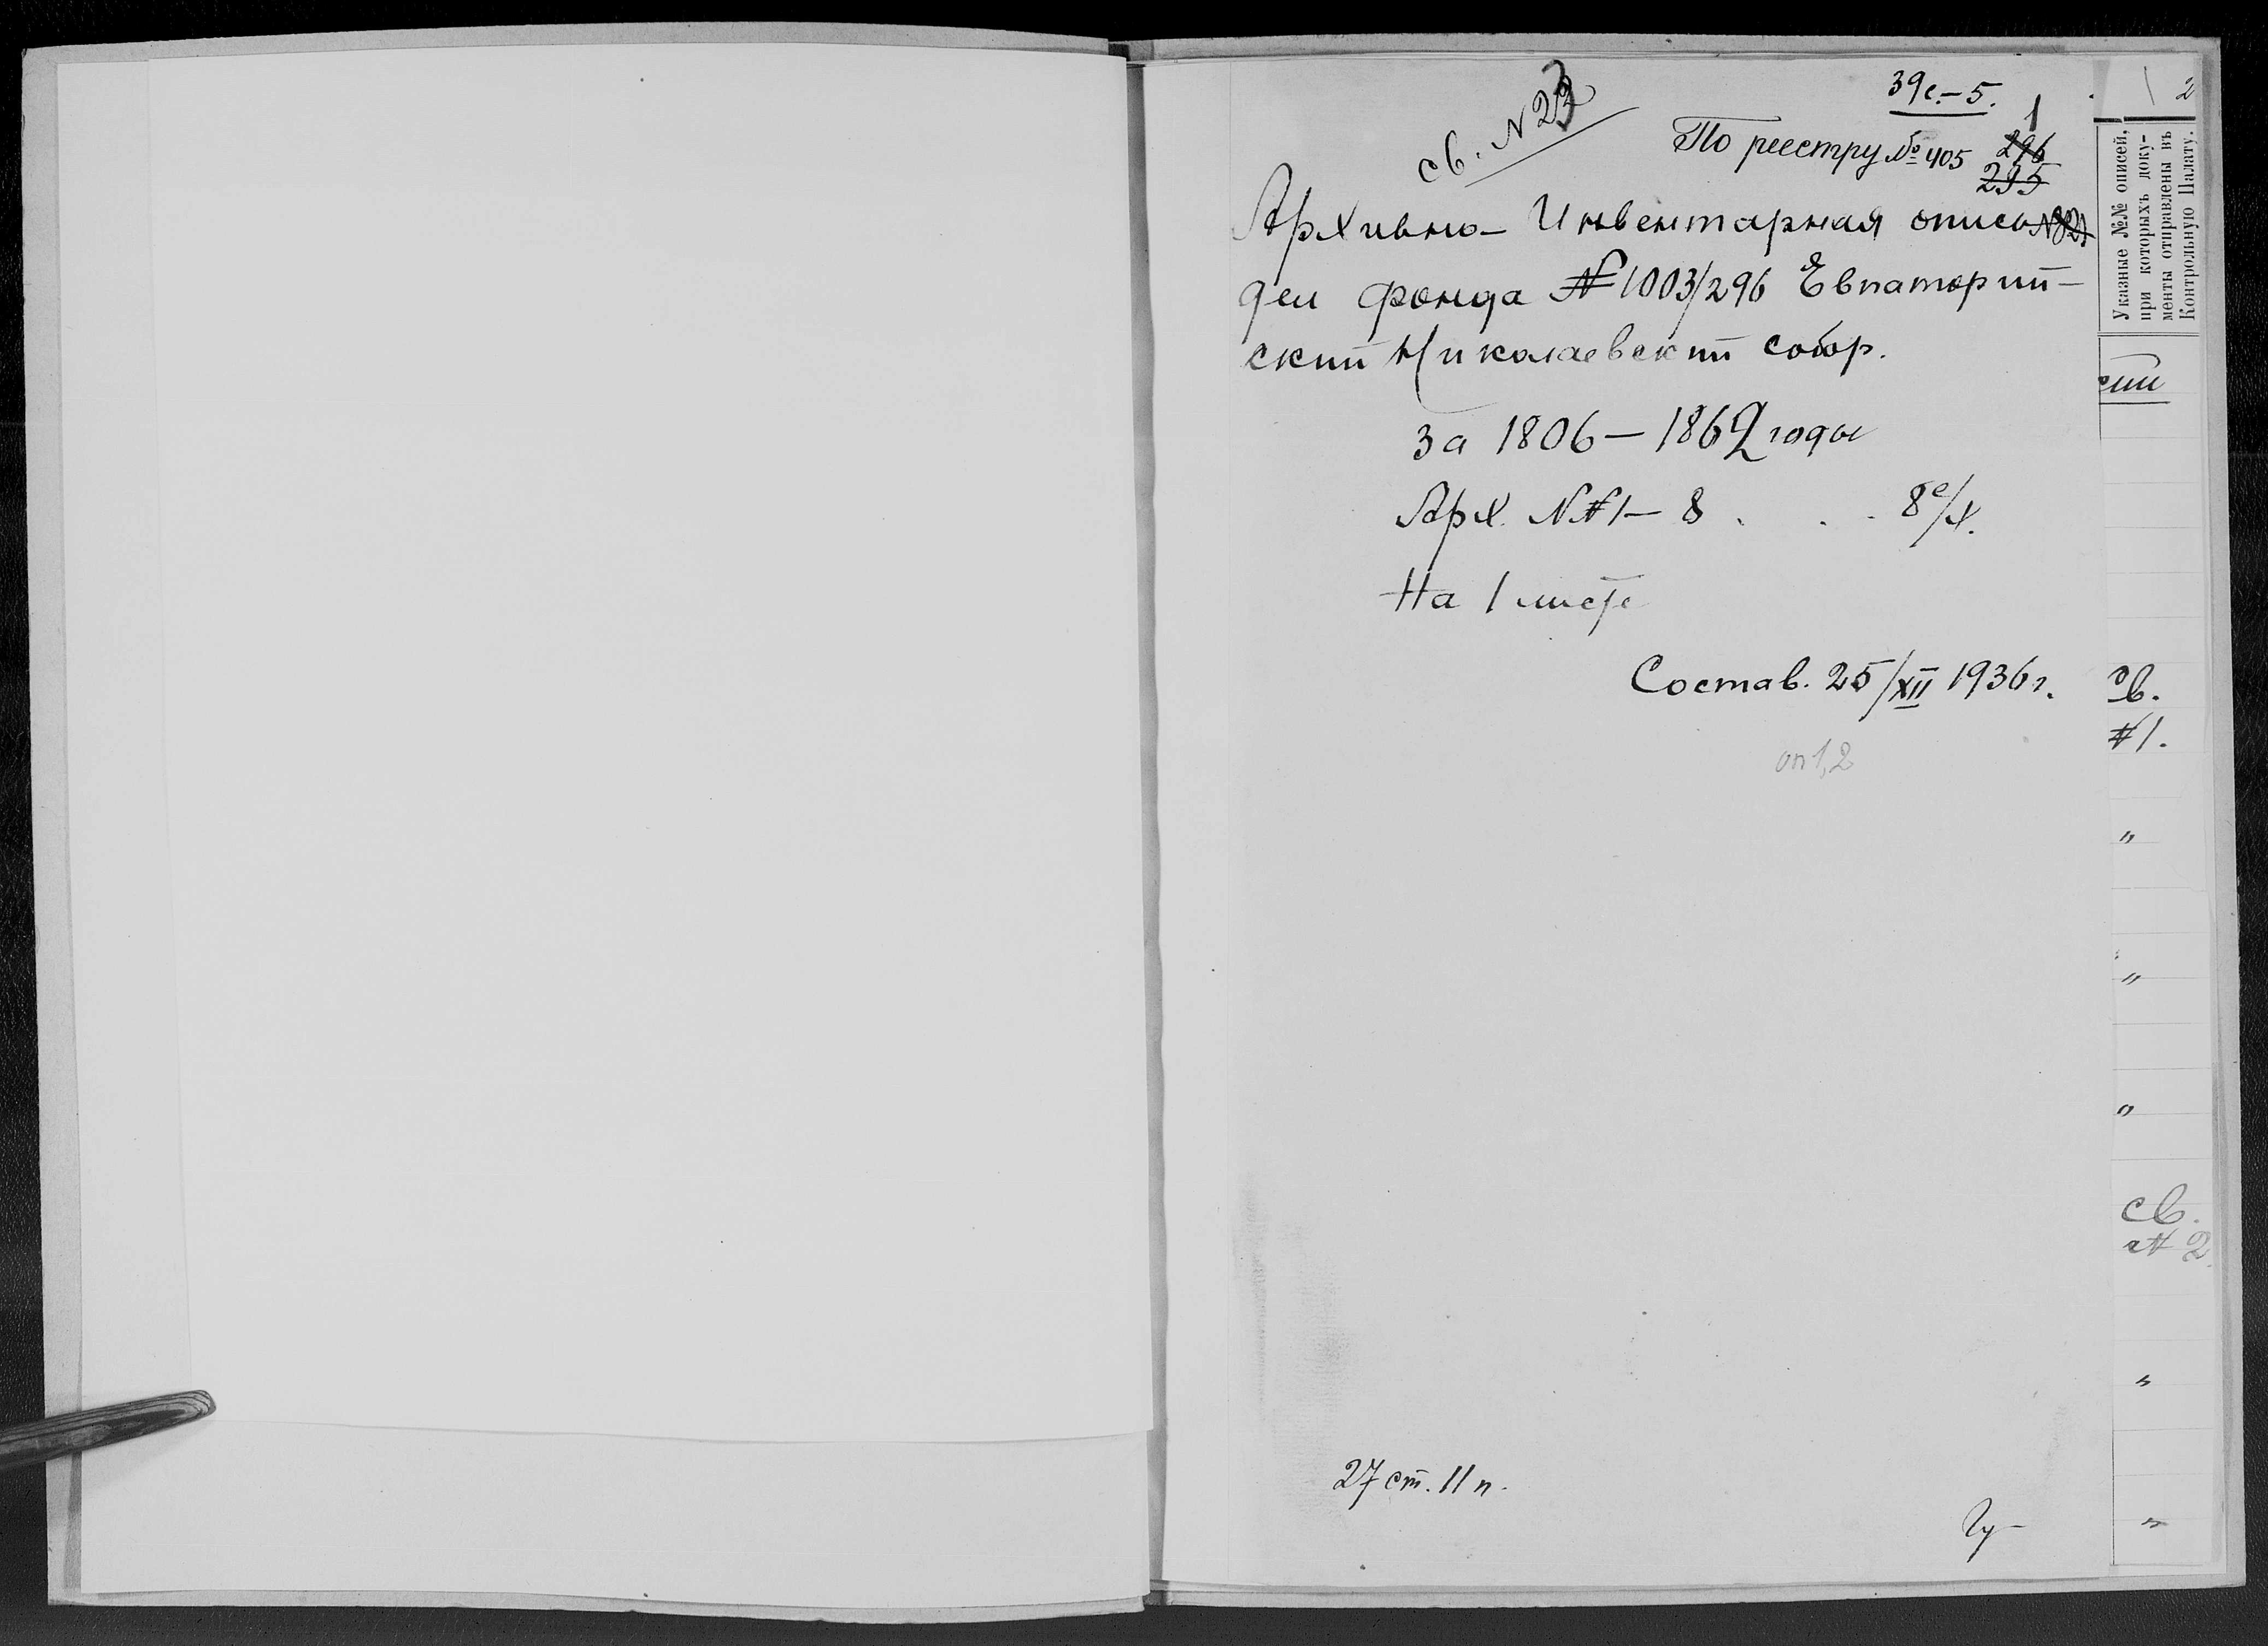 39 с. – 5.
св. N 23
1
По реестру № 405
296
295
Архивно – Инвентарная опись
дел фонда № 1003/296 Евпаторий–
ский Николаевский собор.
За 1806 – 1862 годы
Арх. NN 1 – 8 . . . 8 е/х.
На 1 листе
Состав. 25/XII 1936 г.
оп 1,2
27 ст. 11 п.
2
Указные №№ описей,
при которыхъ доку-
менты отправлены въ
Контрольную Палату.
св.
N 1.
"
"
"
св.
N 2.
"
"